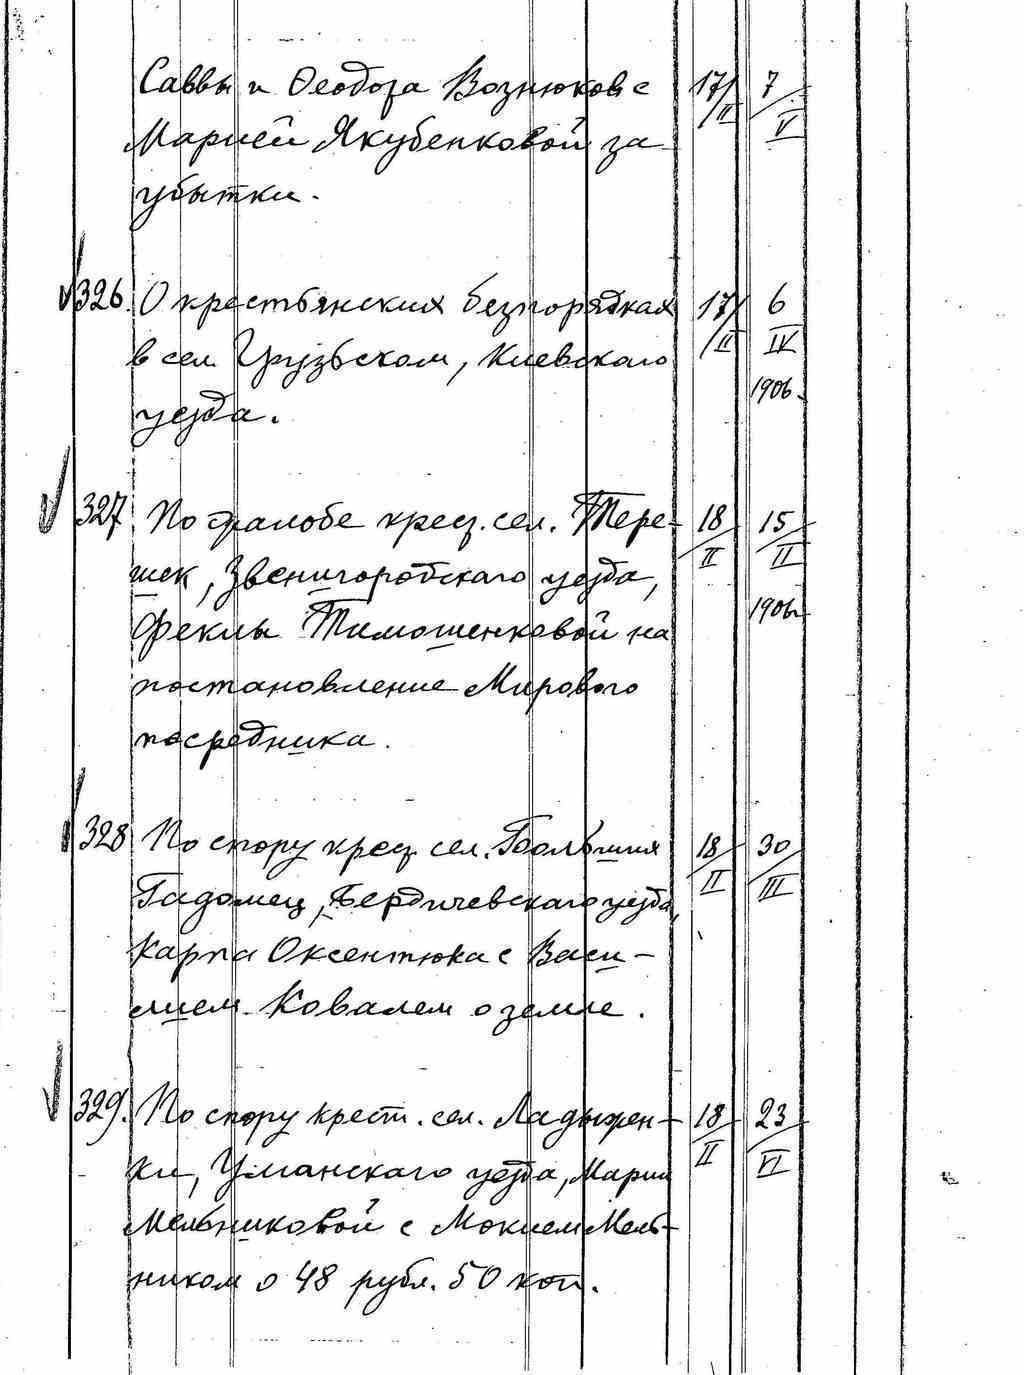 Саввы и Феодора Вознюков с 17/II 7/V
Марией Якубенковой за
убытки.
326. О крестьянских безпорядках 17/II 6/IV
в сел. Грузьском, Киевскаго 1906.
уезда.
327 По жалобе крес. сел. Тере- 18/II 15/II
шек, Звенигородскаго уезда, 1906
Феклы Тимошенковой на
постановление Мирового
посредника.
328 По спору крес. сел. Большия 18/II 30/III
Гадомец, Бердичевскаго уезда,
Карпа Оксентюка с Васи-
лием Ковалем о земле.
329. По спору крест. сел. Ладыжен- 18/II 23/VI
ки, Уманскаго уезда, Марии
Мельниковой с Мокием Мель-
ником о 48 рубл. 50 коп.